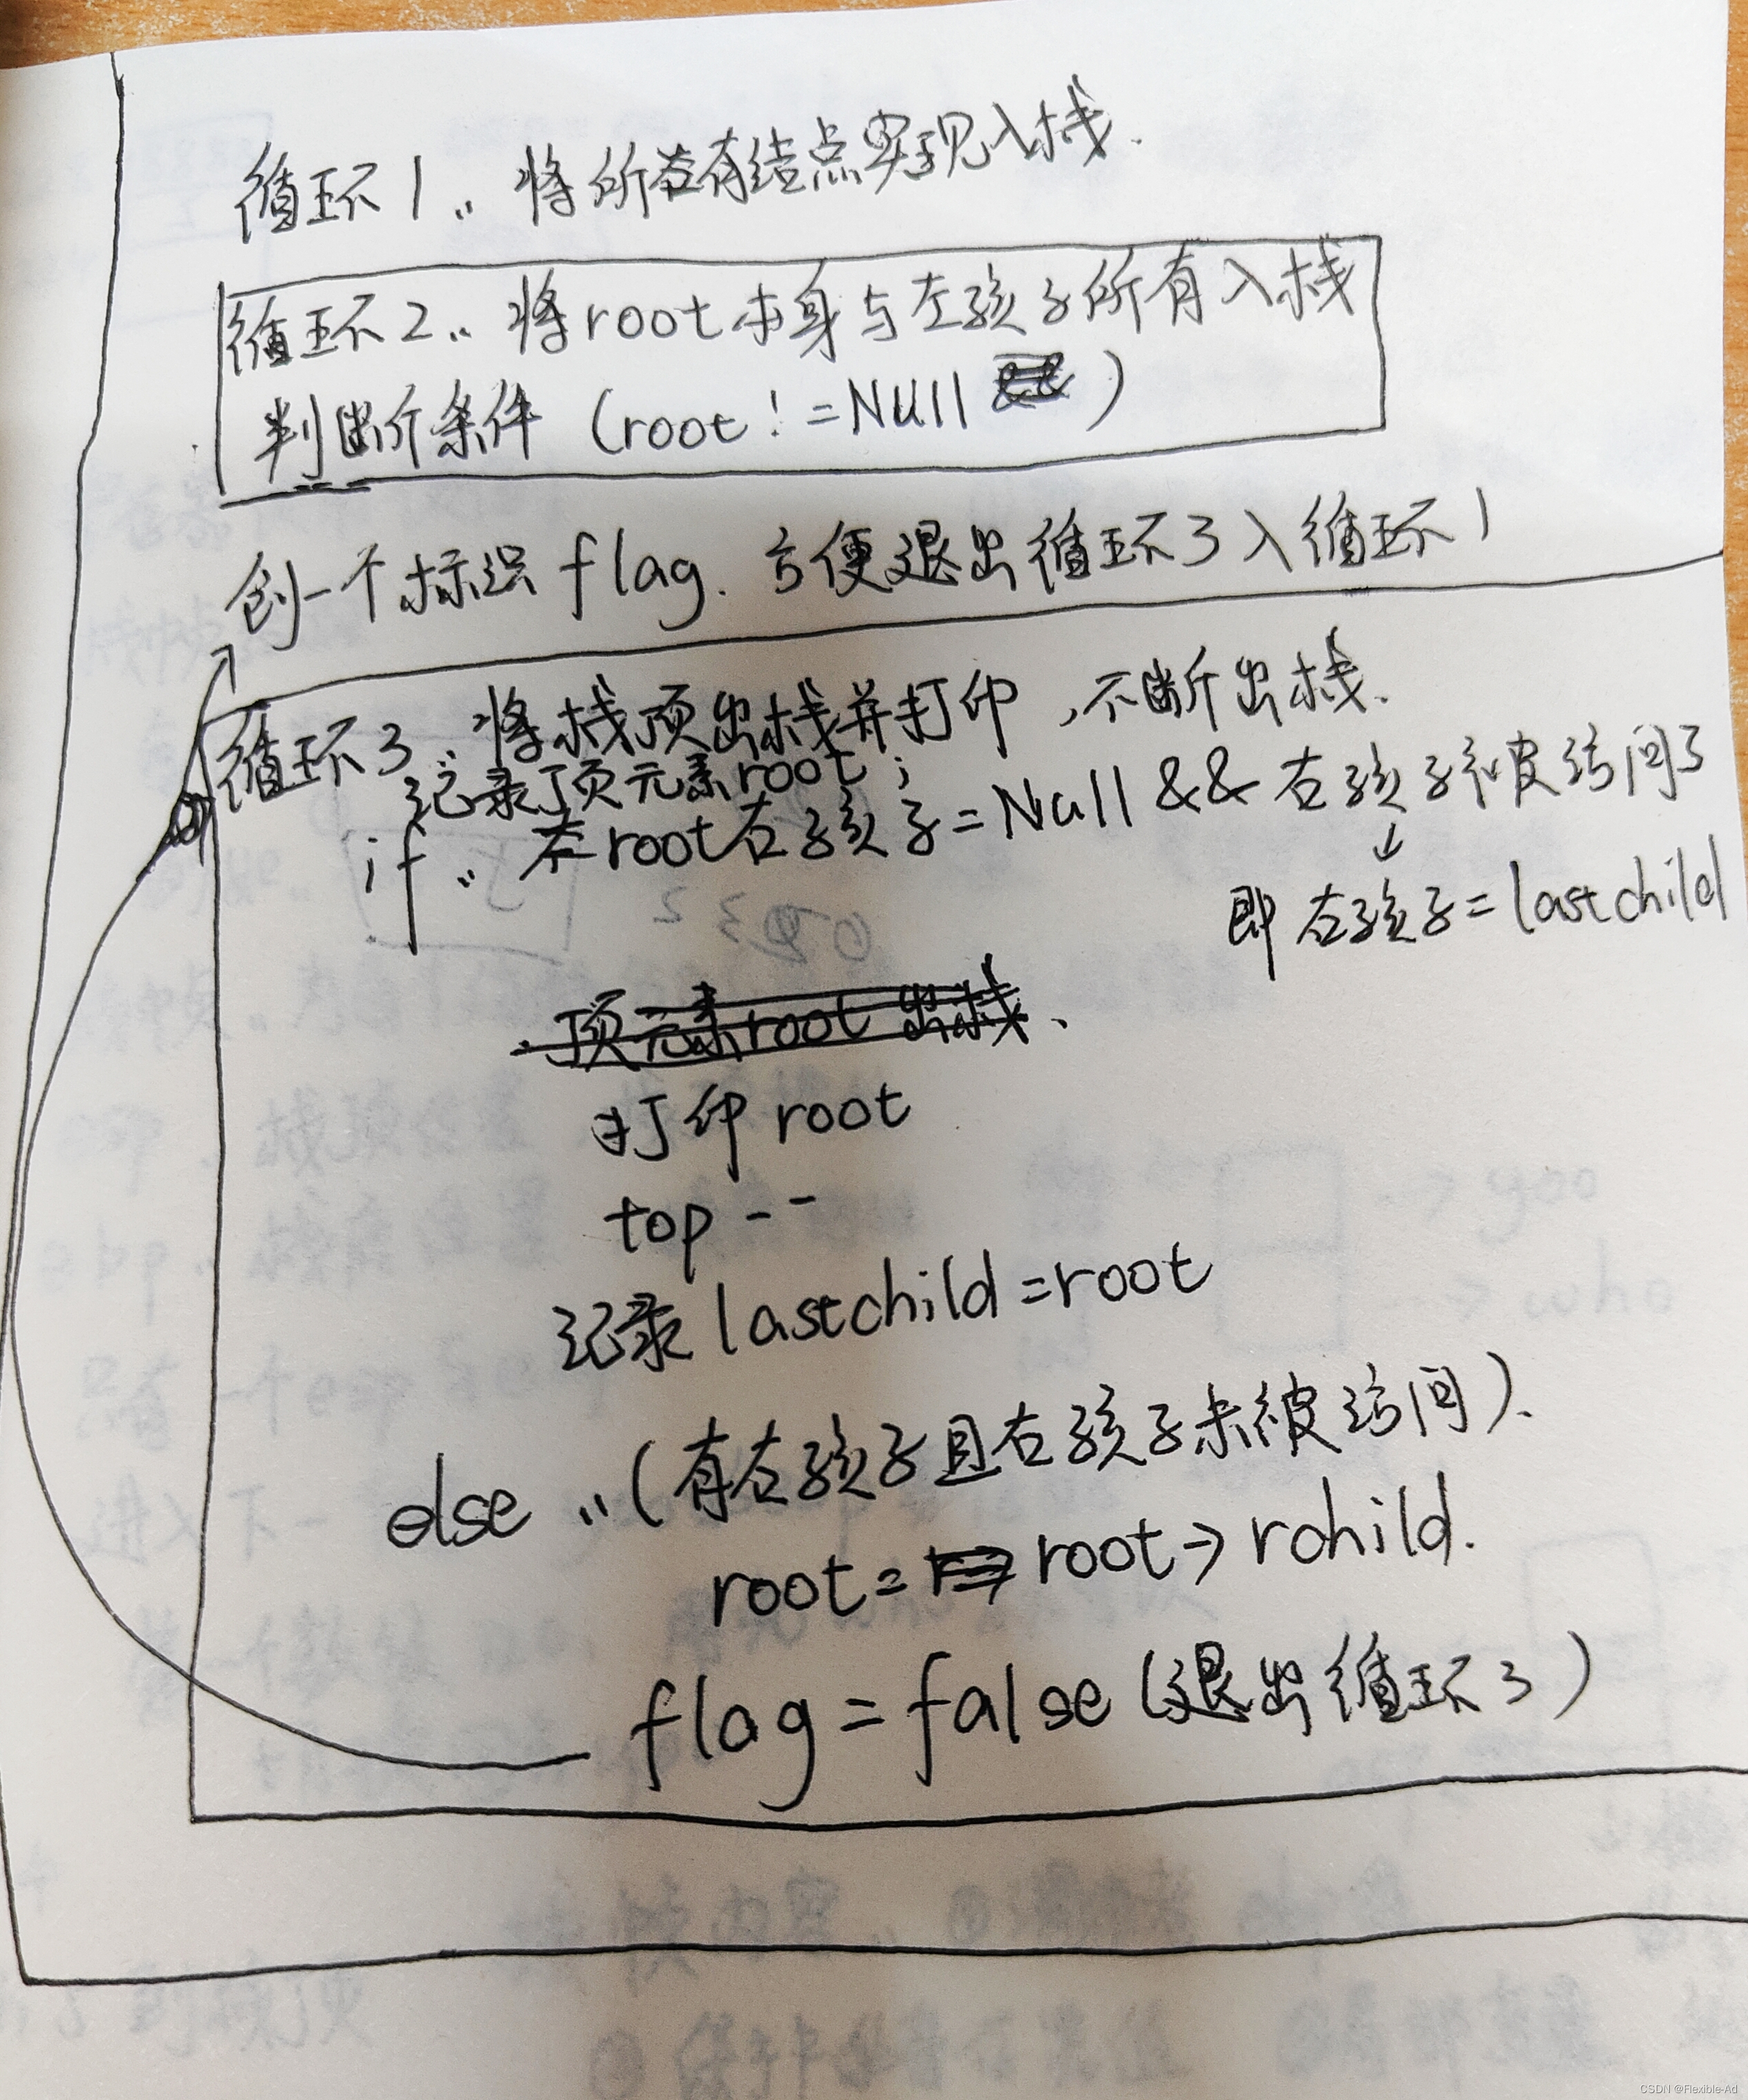 循环1：将所有结点实现入栈.
循环2：将root本身与左孩子所有入栈
判断条件（root！=Null）
创一个标识flag.方便退出循环3入循环1
循环3：将栈顶出栈并打印，不断出栈.
记录顶元素root；
if：若root右孩子=Null&&右孩子被访问了
↓
即右孩子=lastchild
顶元素root出栈、
打印root
top--
记录lastchild=root
else：（有右孩子且右孩子未被访问）.
root=root->rchild.
flag=false（退出循环3）
CSDN @Flexible-Ad